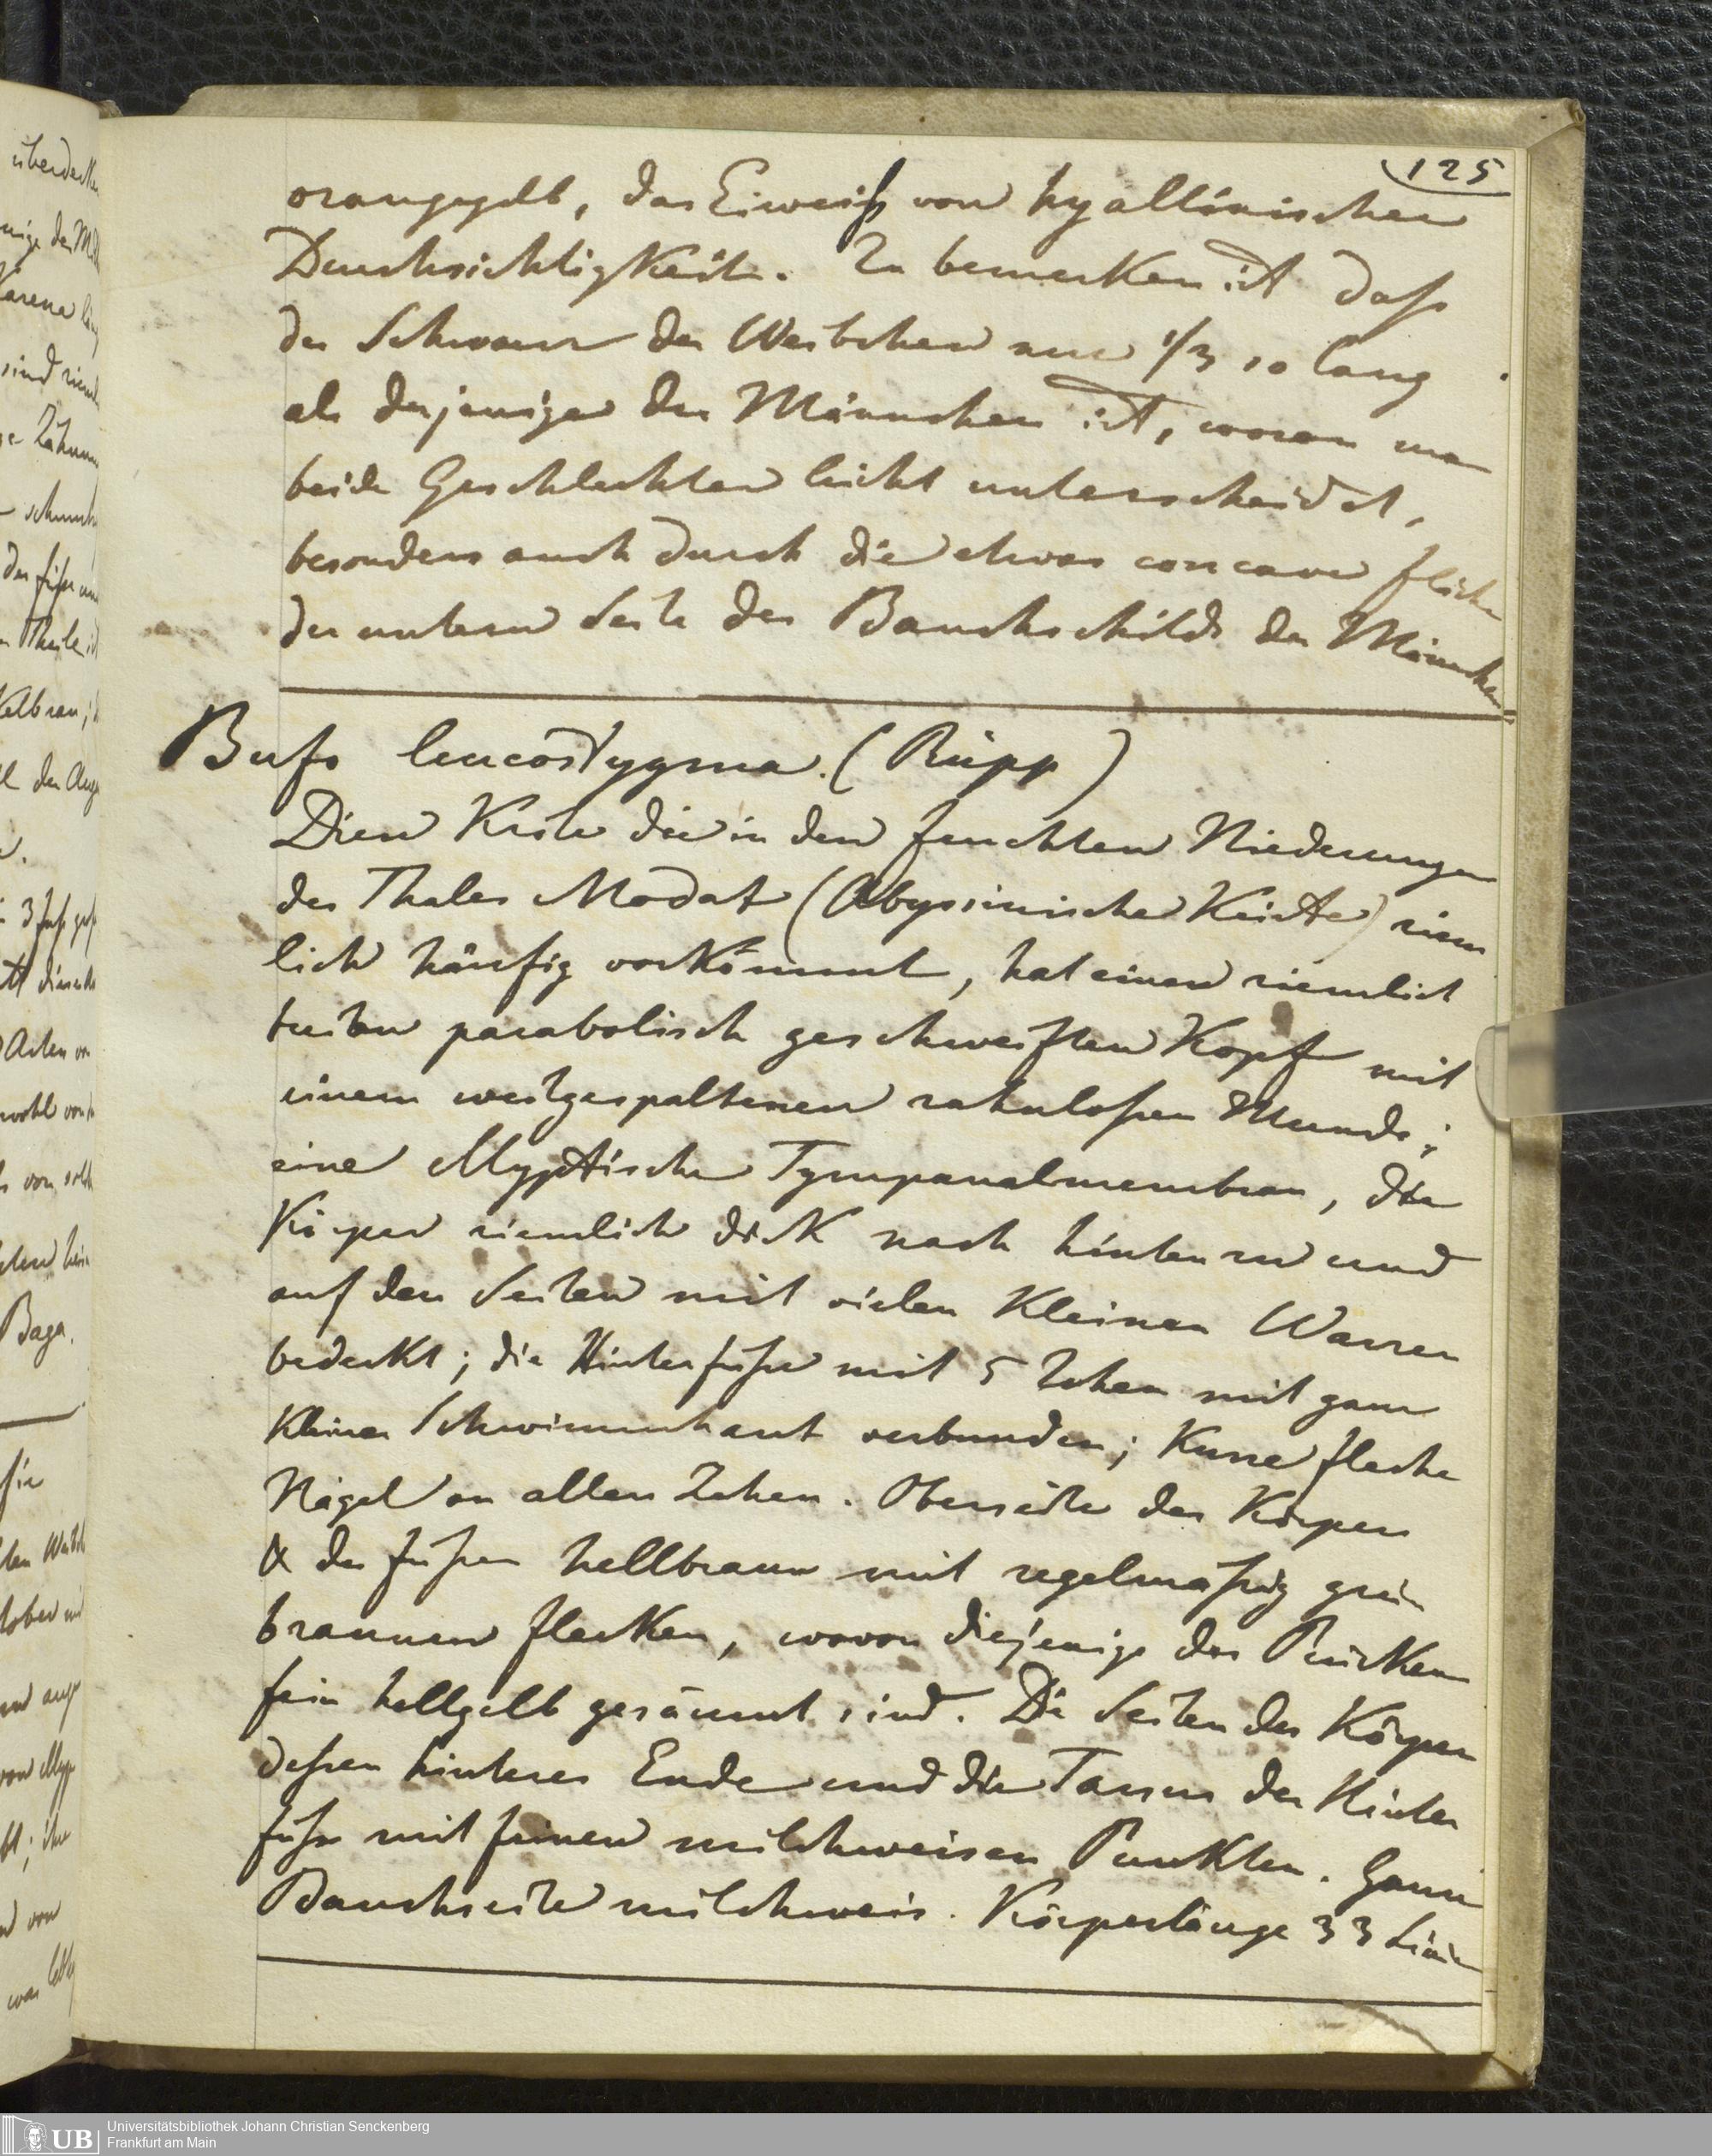 125
orangegelb, das Eiweiß von hyallinischer
Durchsichtigkeit. Zu bemerken ist daß
der Schwanz der Weibchen nur 1/3 so lang
als derjenige der Männchen ist, woran man
beide Geschlechter leicht unterscheidet,
besonders auch durch die etwas concave fläche
der untern Seite des Bauchschilds der Männchen
Bufo leucostygma. (Rüpp)
Diese Kröte die in den feuchten Niederungen
des Thales Modat (Abyssinische Küste) ziem
lich häufig vorkömmt, hat einen ziemlich
breiten parabolisch geschweiften Kopf mit
einem weitgespaltenen zahnloßen Munde;
eine ellyptische Tympanalmembran, der
Körper ziemlich dick nach hinten zu und
auf den Seiten mit vielen Kleinen Warzen
bedeckt; die Hinterfüße mit 5 Zehen mit ganz
Kleiner Schwimmhaut verbunden; Kurze flache
Nägel an allen Zehen. Oberseite des Körpers
& der füßen hellbraun mit regelmäßig grün
braunen flecken, wovon diejenige des Rücken
fein hellgelb gesäumt sind. Die Seiten des Körpers
deßen hinteres Ende und die Tarsus der Hinter
füße mit feinen milchweisen Punkten. Ganze
Bauchseite milchweis. Körperlänge 33 Linien
überdecken
sind
Baga.
von
Universitätsbibliothek Johann Christian Senckenberg
Frankfurt am Main
UB